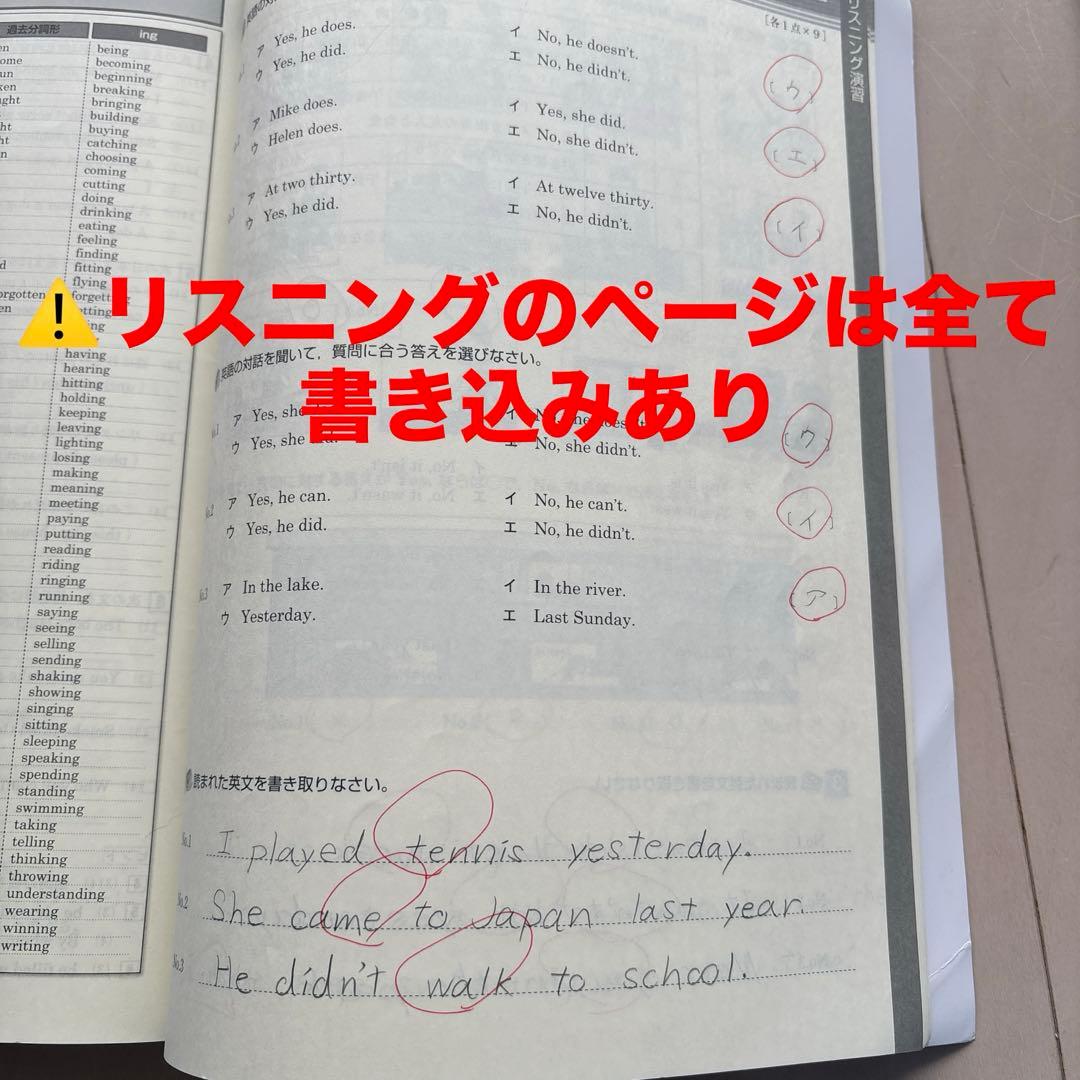 過去分詞形 ing
being
becoming
beginning
breaking
bringing
building
buying
catching
choosing
coming
cutting
doing
drinking
eating
feeling
finding
fitting
flying
forgetting
having
hearing
hitting
holding
keeping
leaving
lighting
losing
making
meaning
meeting
paying
putting
reading
riding
ringing
running
saying
seeing
selling
sending
shaking
showing
singing
sitting
sleeping
speaking
spending
standing
swimming
taking
telling
thinking
throwing
understanding
wearing
winning
writing
リスニング演習
[各1点×9]
ア Yes, he does. イ No, he doesn't.
ウ Yes, he did. エ No, he didn't.
[ウ]
ア Mike does. イ Yes, she did.
ウ Helen does. エ No, she didn't.
[エ]
ア At two thirty. イ At twelve thirty.
ウ Yes, he did. エ No, he didn't.
[イ]
⚠️リスニングのページは全て
書き込みあり
英語の対話を聞いて，質問に合う答えを選びなさい。
ア Yes, she イ
ウ Yes, she エ No, she didn't.
[ウ]
No.2 ア Yes, he can. イ No, he can't.
ウ Yes, he did. エ No, he didn't.
[イ]
No.3 ア In the lake. イ In the river.
ウ Yesterday. エ Last Sunday.
[ア]
読まれた英文を書き取りなさい。
No.1 I played tennis yesterday.
No.2 She came to Japan last year.
No.3 He didn't walk to school.